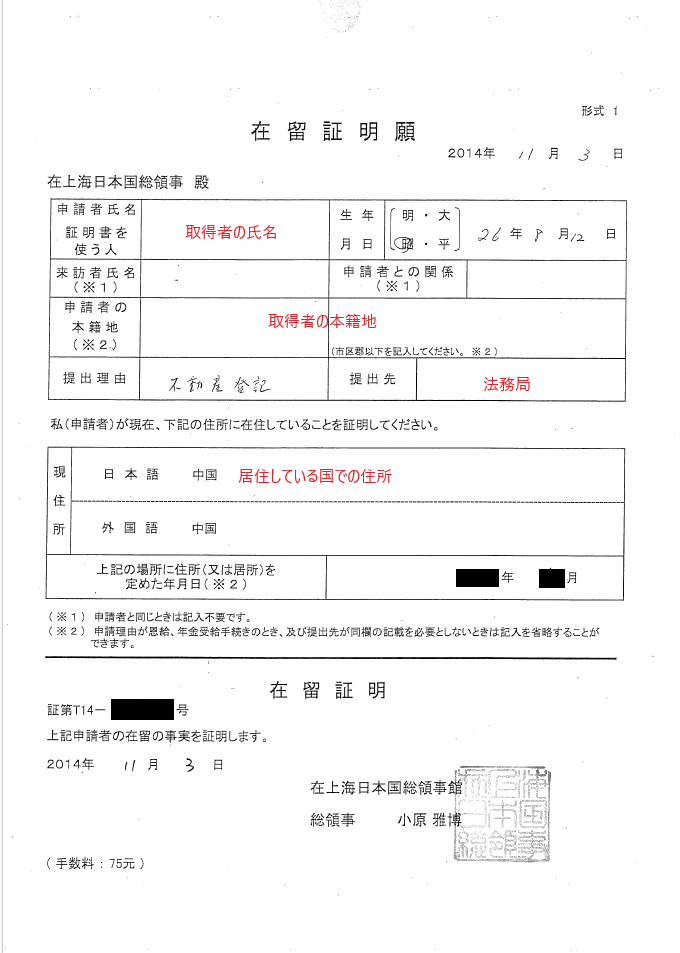 形式 1
在留証明願
2014年 11月 3日
在上海日本国総領事 殿
申請者氏名
証明書を
使う人
取得者の氏名
生年
月日
明・大
昭・平
26年 8月12日
来訪者氏名
(※1)
-
申請者との関係
(※1)
申請者の
本籍地
(※2)
取得者の本籍地
(市区郡以下を記入してください。※2)
提出理由
不動産登記
提出先
法務局
私(申請者)が現在、下記の住所に在住していることを証明してください。
現住所
日本語 中国 居住している国での住所
外国語 中国
上記の場所に住所(又は居所)を
定めた年月日(※2)
年 月
(※1) 申請者と同じときは記入不要です。
(※2) 申請理由が恩給、年金受給手続きのとき、及び提出先が同欄の記載を必要としないときは記入を省略することが
できます。
在留証明
証第T14- 号
上記申請者の在留の事実を証明します。
2014年 11月 3日
在上海日本国総領事館
総領事 小原 雅博
(手数料：75元)